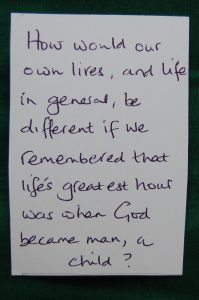 How would our
own lives, and life
in general, be
different if we
remembered that
life's greatest hour
was when God
became man, a
child?